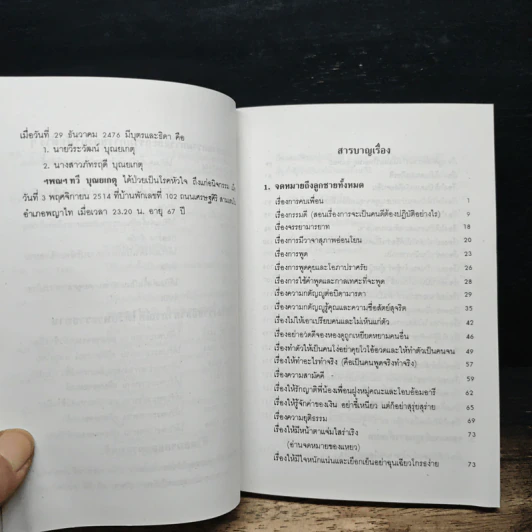 เมื่อวันที่ 29 ธันวาคม 2476 มีบุตรและธิดา คือ
1. นายวีระวัฒน์ บุณยเกตุ
2. นางสาวภัทรฤดี บุณยเกตุ
ฯพณฯ ทวี บุณยเกตุ ได้ป่วยเป็นโรคหัวใจ ถึงแก่อนิจกรรม
วันที่ 3 พฤศจิกายน 2514 ที่บ้านพักเลขที่ 102 ถนนเศรษฐศิริ
อำเภอพญาไท เมื่อเวลา 23.20 น. อายุ 67 ปี
สารบาญเรื่อง
1. จดหมายถึงลูกชายทั้งหมด
เรื่องการคบเพื่อน 1
เรื่องกรรมดี (ตอนเรื่องการจะเป็นคนดีต้องปฏิบัติอย่างไร) 9
เรื่องจรรยามารยาท 18
เรื่องการมีวาจาสุภาพอ่อนโยน 20
เรื่องการพูด 23
เรื่องการพูดคุยและโอภาปราศรัย 26
เรื่องการใช้คำพูดและกาลเทศะที่จะพูด 28
เรื่องความกตัญญูต่อบิดามารดา 29
เรื่องความกตัญญูรู้คุณและความซื่อสัตย์สุจริต 35
เรื่องไม่ให้เอาเปรียบคนและไม่เห็นแก่ตัว 42
เรื่องอย่าอวดดีจองหองดูถูกเหยียดหยามคนอื่น 44
เรื่องทำตัวให้เป็นคนโง่อย่าคุยโวโอ้อวดและให้ทำตัวเป็นคนจน 49
เรื่องให้ทำอะไรทำจริง (คือเป็นคนพูดจริงทำจริง) 57
เรื่องความสามัคคี 59
เรื่องให้รักญาติพี่น้องเพื่อนฝูงหมู่คณะและโอบอ้อมอารี 62
เรื่องให้รู้จักค่าของเงิน อย่าขี้เหนียว แต่ก็อย่าสุรุ่ยสุร่าย 65
เรื่องความยุติธรรม 69
เรื่องให้มีหน้าตาแจ่มใสร่าเริง 73
(อ่านจดหมายของแหยว)
เรื่องให้มีใจหนักแน่นและเยือกเย็นอย่าฉุนเฉียวโกรธง่าย 73